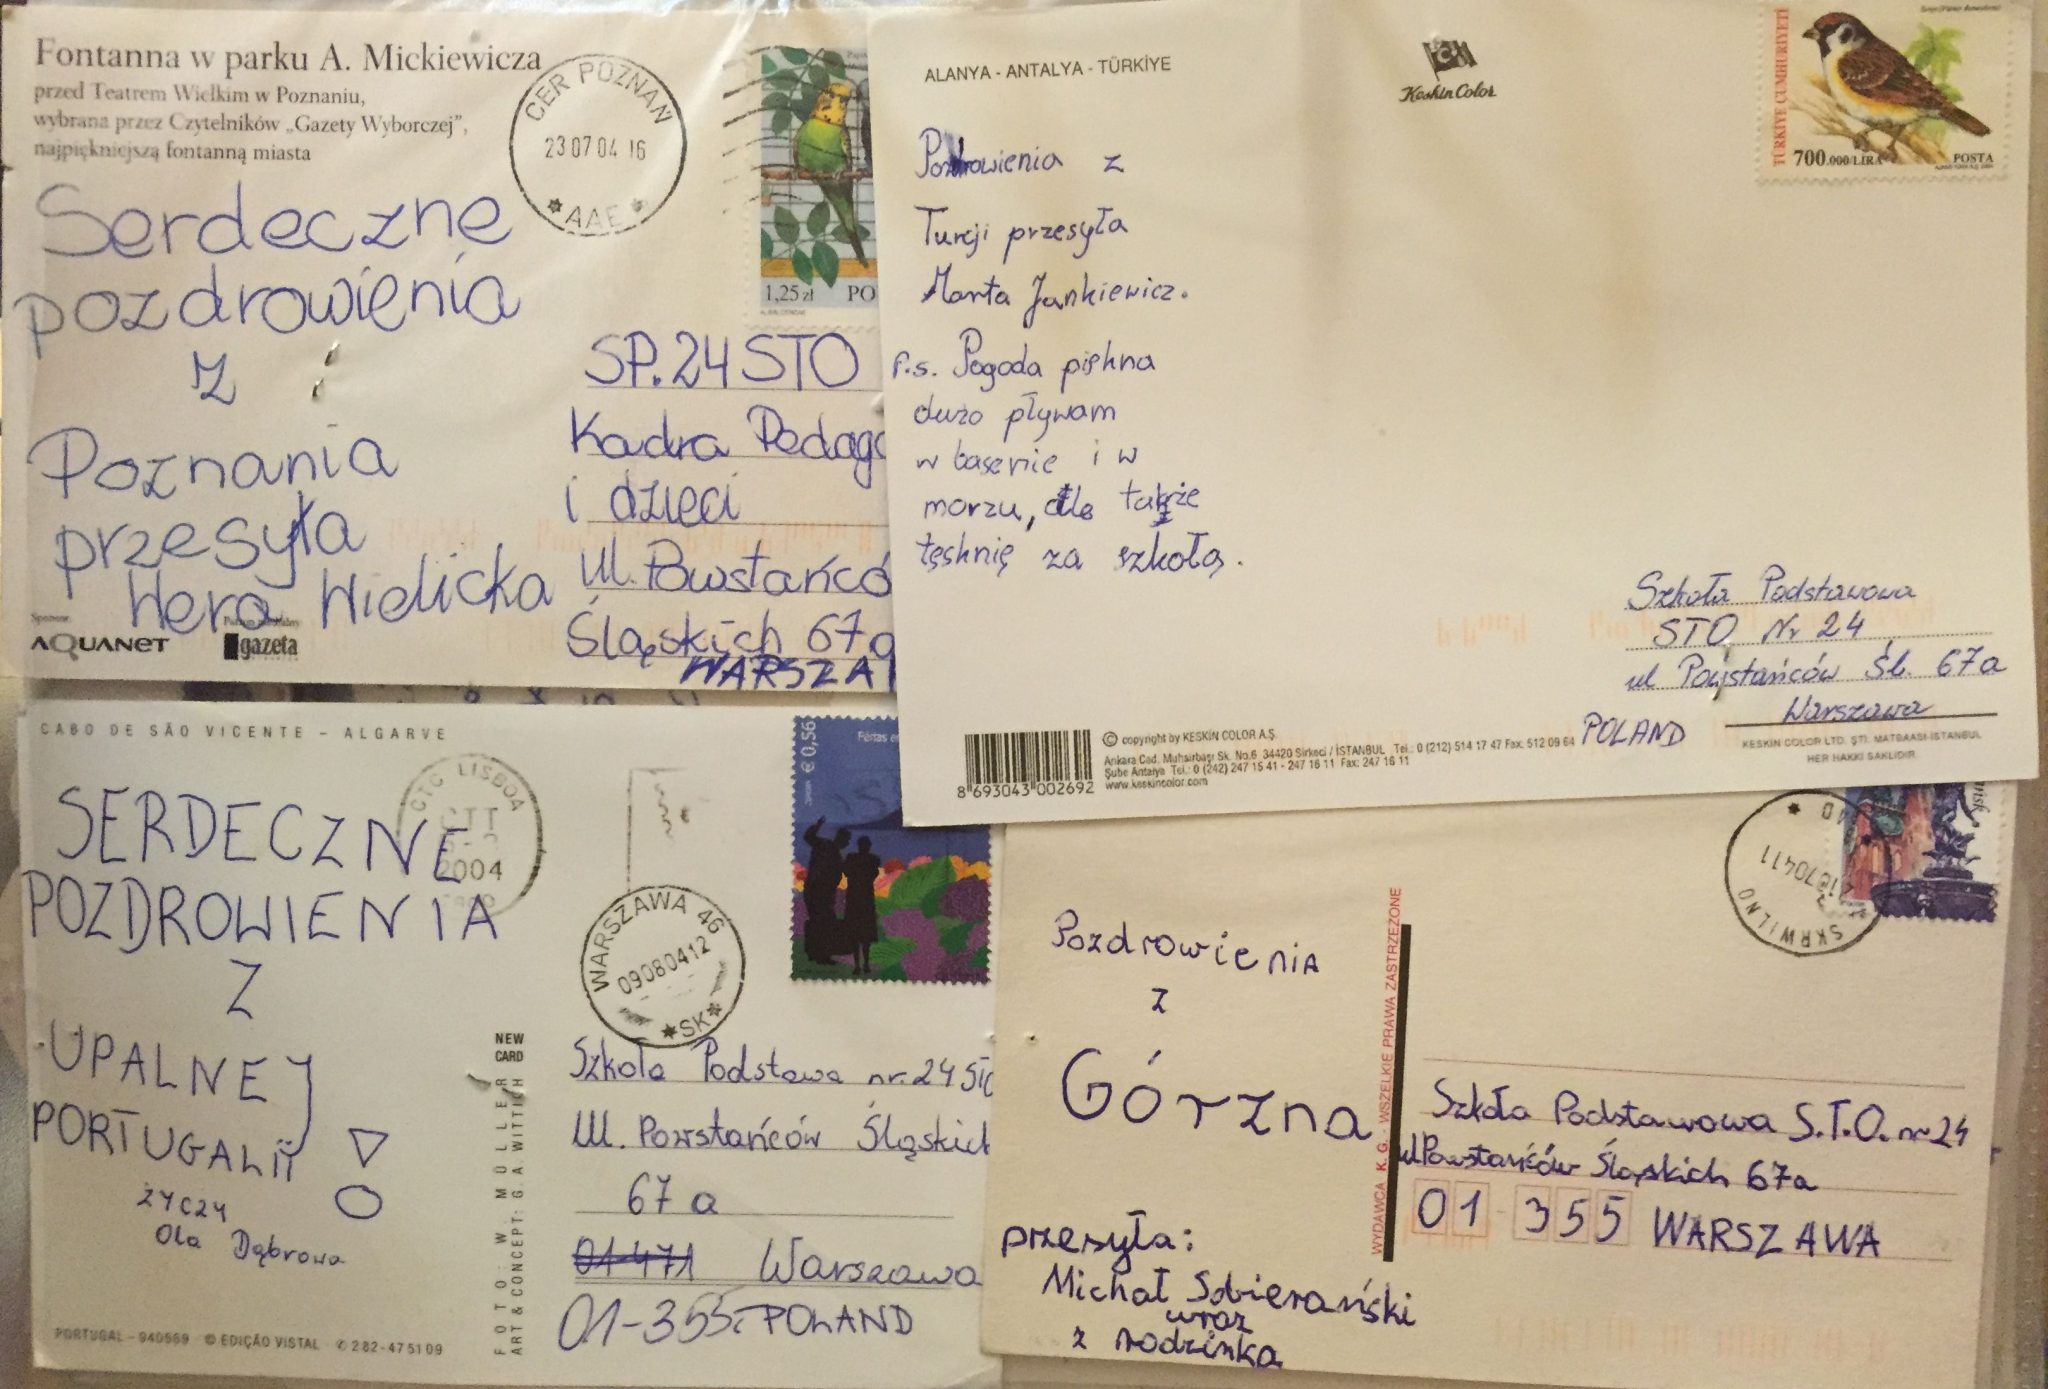 Fontanna w parku A. Mickiewicza
przed Teatrem Wielkim w Poznaniu,
wybrana przez Czytelników „Gazety Wyborczej”,
najpiękniejszą fontanną miasta
CER POZNAŃ
23 07 04 16
* AAE *
1,25 zł PO
Serdeczne
pozdrowienia
z
Poznania
przesyła
Wera Wielicka
Sponsor
AQUANET
gazeta
SP. 24 STO
Kadra Pedago
i dzieci
ul. Powstańcó
Śląskich 67a
WARSZA
ALANYA - ANTALYA - TÜRKİYE
Keskin Color
TÜRKİYE CUMHURİYETİ
700.000/LİRA
POSTA
Pozdrowienia z
Turcji przesyła
Marta Jankiewicz.
P.s. Pogoda piękna
dużo pływam
w basenie i w
morzu, ale także
tęsknię za szkołą.
Szkoła Podstawowa
STO Nr 24
ul Powstańców Śl. 67a
Warszawa
POLAND
KESKİN COLOR LTD. ŞTİ. MATBAASI-İSTANBUL
HER HAKKI SAKLIDIR
© copyright by KESKİN COLOR A.Ş.
Ankara Cad. Muhsirbaşı Sk. No.6 34420 Sirkeci / İSTANBUL Tel.: 0 (212) 514 17 47 Fax: 512 09 64
Şube Antalya Tel.: 0 (242) 247 15 41 - 247 16 11 Fax: 247 16 11
www.keskincolor.com
8 693043 002692
CABO DE SÃO VICENTE – ALGARVE
CTC LISBOA
CTT
2004
€ 0,56
Férias em
SERDECZNE
POZDROWIENIA
Z
UPALNEJ
PORTUGALII!
ŻYCZY
Ola Dąbrowa
WARSZAWA 46
09080412
*SK*
NEW
CARD
FOTO: W. MÜLLER
ART & CONCEPT: G. A. WITTICH
Szkoła Podstawa nr. 24 STO
Ul. Powstańców Śląskich
67 a
01-471 Warszawa
01-355. POLAND
PORTUGAL – 940569 © EDIÇÃO VISTAL ✆ 282-475109
SKRWILNO
Pozdrowienia
z
Górzna
przesyła:
Michał Sobierański
wraz
z rodzinka
WYDAWCA K. G. WSZELKIE PRAWA ZASTRZEŻONE
Szkoła Podstawowa S.T.O. nr 24
ul Powstańców Śląskich 67a
01-355 WARSZAWA